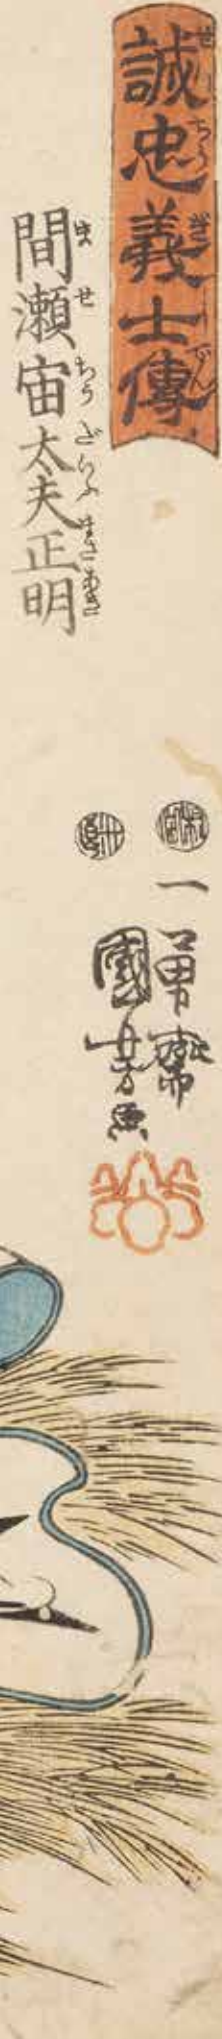 誠忠義士傳
せいちうぎしでん
間瀬宙太夫正明
ませちうだいふまさあき
一勇齋
國芳画